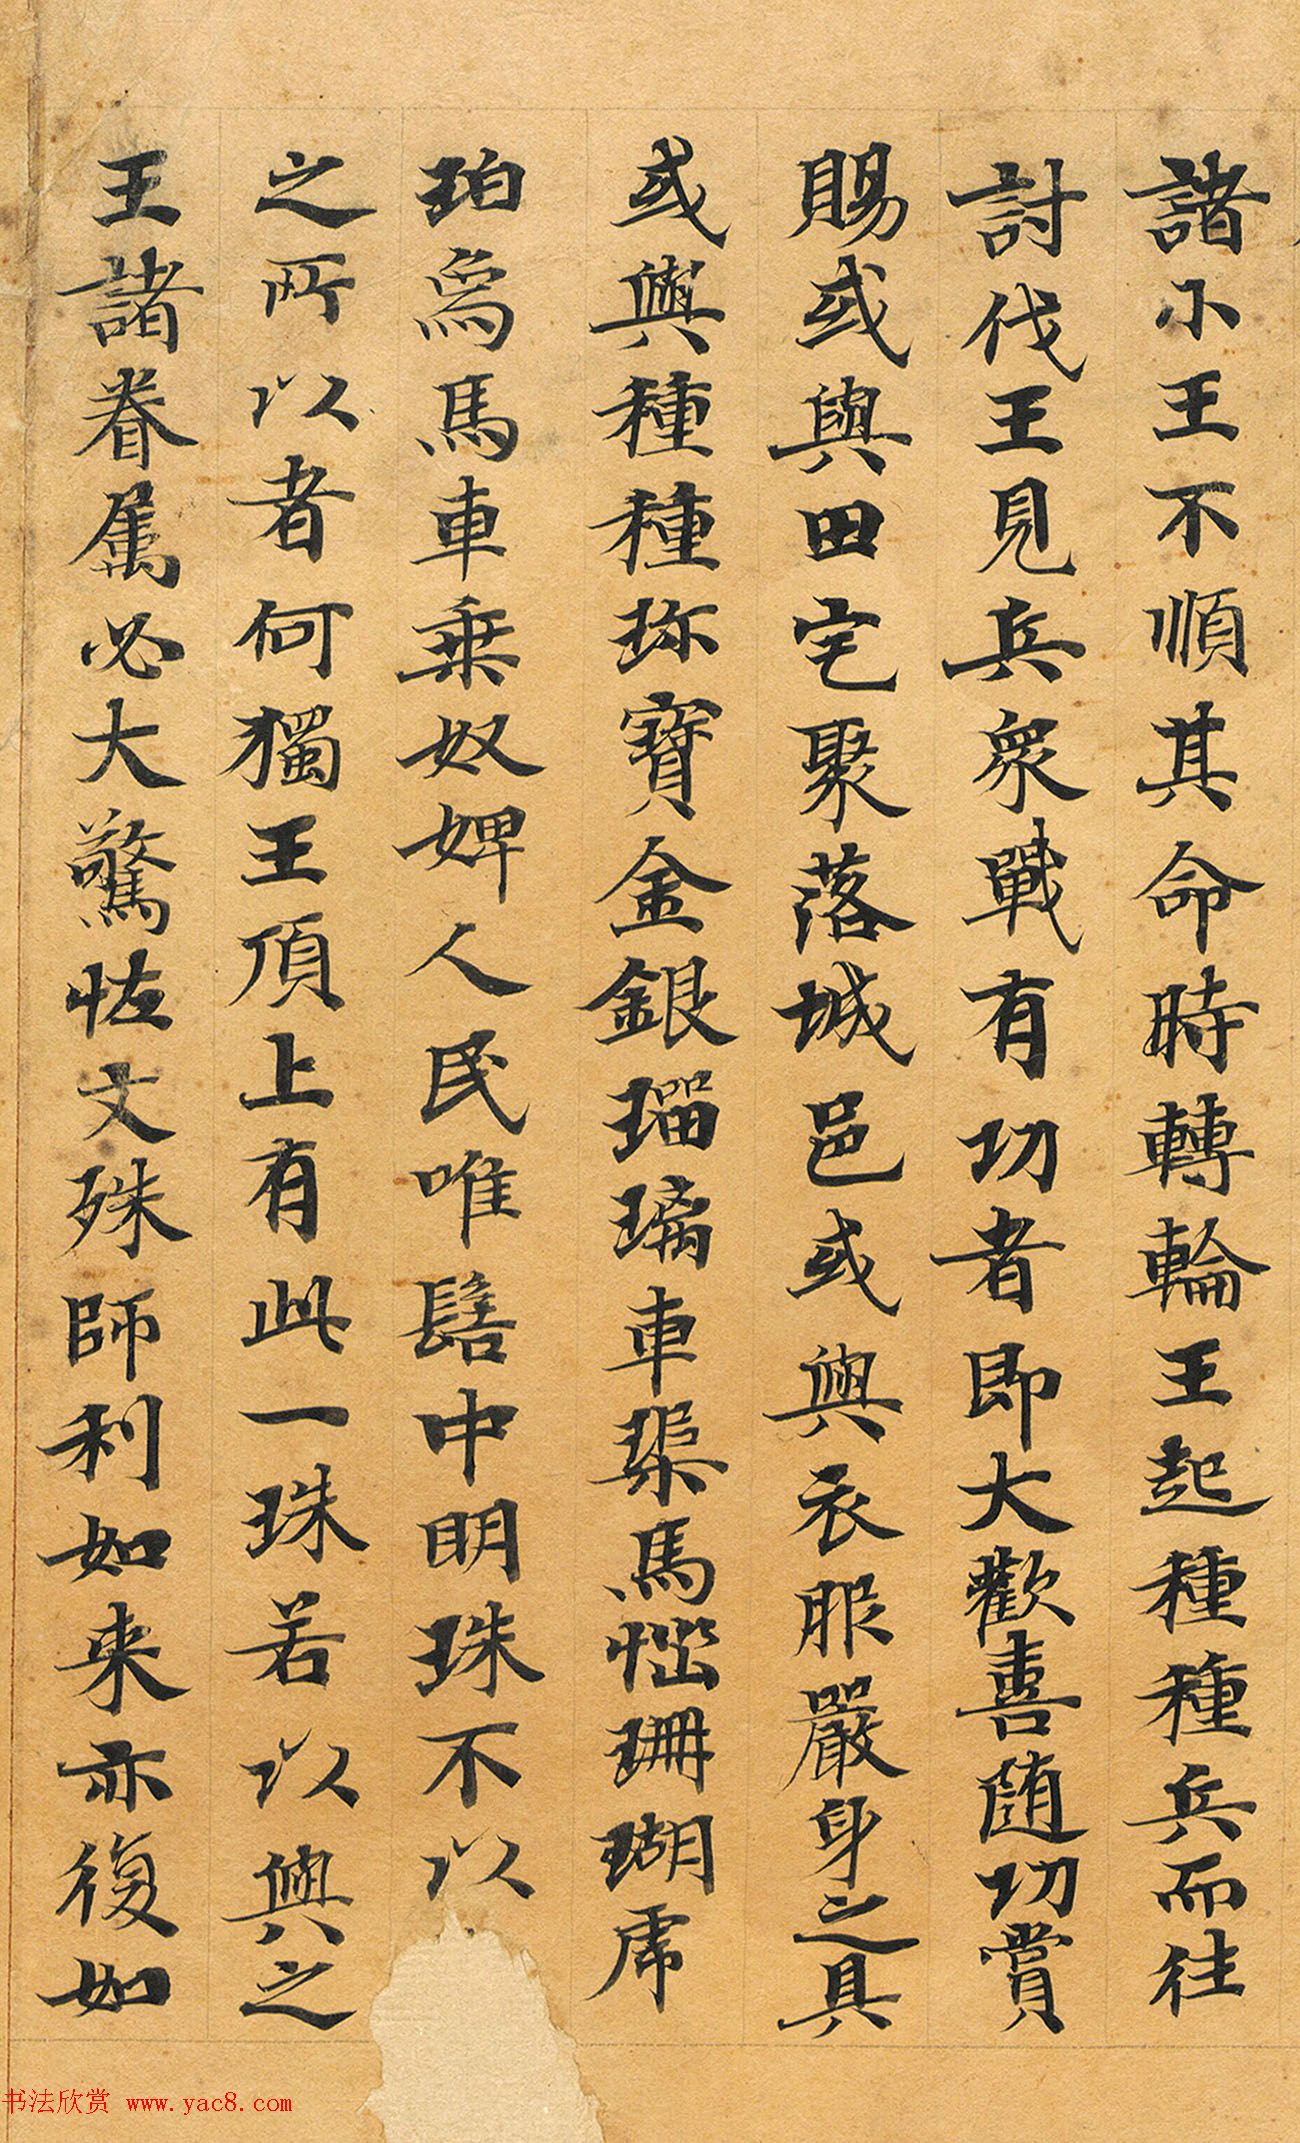 諸小王不順其命時轉輪王起種種兵而往
討伐王見兵衆戰有功者即大歡喜隨功賞
賜或與田宅聚落城邑或與衣服嚴身之具
或與種種珎寶金銀瑠璃車璖馬瑙珊瑚虎
珀象馬車乗奴婢人民唯髻中明珠不以
之所以者何獨王頂上有此一珠若以與之
王諸眷属必大驚恠文殊師利如来亦復如
书法欣赏 www.yac8.com